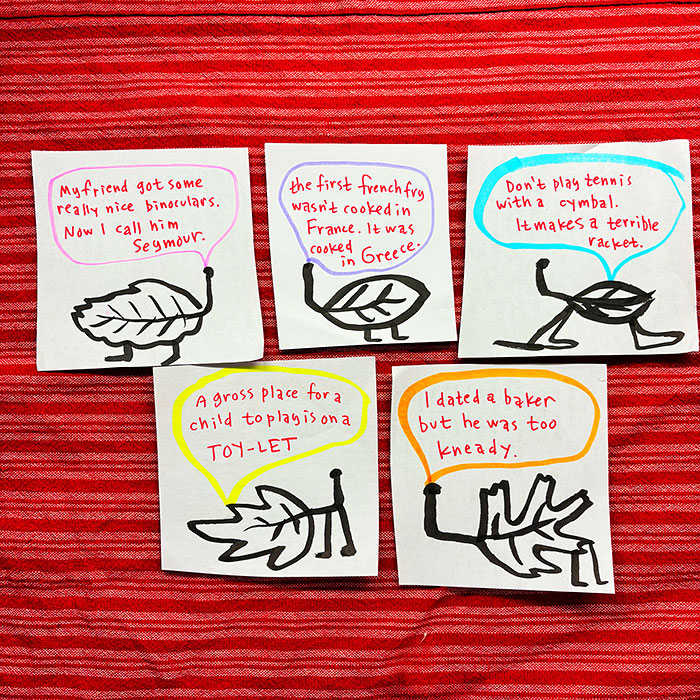 My friend got some
really nice binoculars.
Now I call him
Seymour.
the first french fry
wasn't cooked in
France. It was
cooked in Greece.
Don't play tennis
with a cymbal.
It makes a terrible
racket.
A gross place for a
child to play is on a
TOY-LET
I dated a baker
but he was too
kneady.